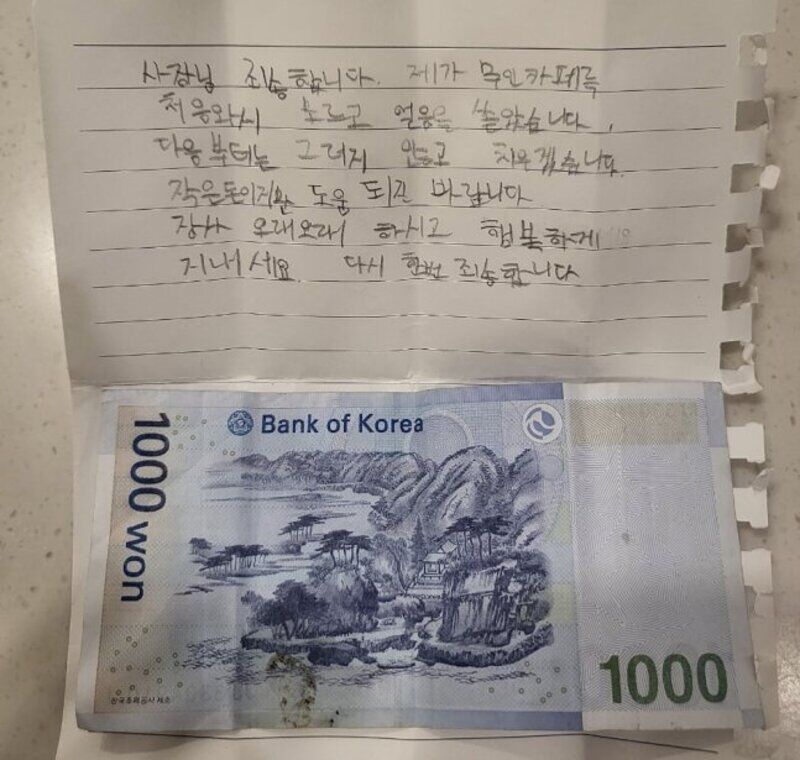 사장님 죄송합니다. 제가 무인카페를
처음와서 모르고 얼음을 쏟았습니다.
다음부터는 그러지 않고 치우겠습니다.
작은돈이지만 도움 되긴 바랍니다
장사 오래오래 하시고 행복하게
지내세요. 다시 한번 죄송합니다
Bank of Korea
1000 won
한국조폐공사 제조
1000